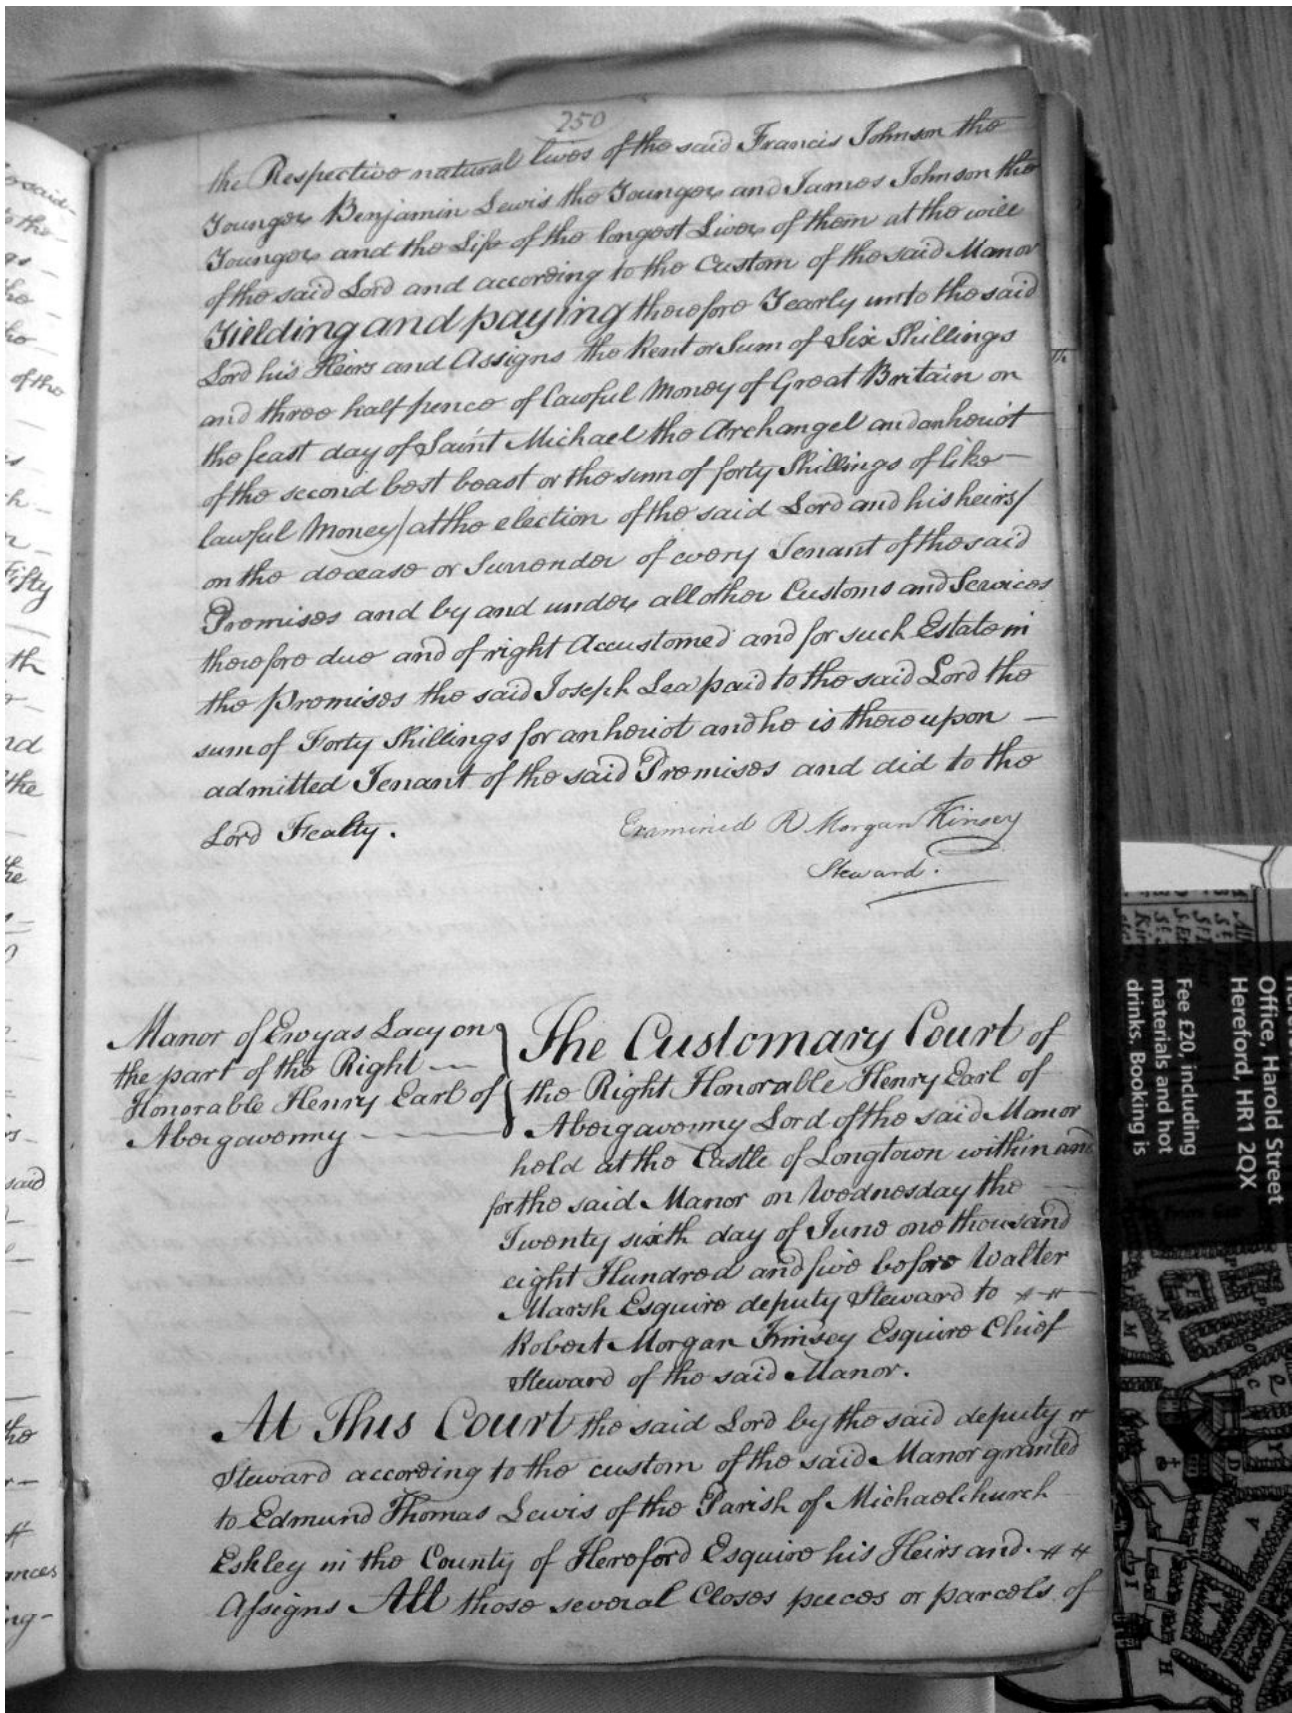 250
the Respective natural lives of the said Francis Johnson the
Younger Benjamin Lewis the Younger and James Johnson the
Younger and the Life of the longest Liver of them at the will
of the said Lord and according to the Custom of the said Manor
Yielding and paying therefore Yearly unto the said
Lord his Heirs and Assigns the Rent or Sum of Six Shillings
and three half pence of lawful Money of Great Britain on
the feast day of Saint Michael the Archangel and an heriot
of the second best beast or the sum of forty Shillings of like
lawful Money / at the election of the said Lord and his heirs /
on the decease or Surrender of every Tenant of the said
Premises and by and under all other Customs and Services
therefore due and of right Accustomed and for such Estate in
the premises the said Joseph Lea paid to the said Lord the
sum of Forty Shillings for an heriot and he is thereupon
admitted Tenant of the said Premises and did to the
Lord Fealty.
Examined R Morgan Kinsey
Steward.
Manor of Ewyas Lacy on
the part of the Right
Honorable Henry Earl of
Abergavenny
The Customary Court of
the Right Honorable Henry Earl of
Abergavenny Lord of the said Manor
held at the Castle of Longtown within and
for the said Manor on Wednesday the
Twenty sixth day of June one thousand
eight Hundred and five before Walter
Marsh Esquire deputy Steward to
Robert Morgan Kinsey Esquire Chief
Steward of the said Manor.
At This Court the said Lord by the said deputy
Steward according to the custom of the said Manor granted
to Edmund Thomas Lewis of the Parish of Michaelchurch
Eskley in the County of Hereford Esquire his Heirs and
Assigns All those several Closes pieces or parcels of
said
to the
of the
Fifty
th
nd
the
said
the
Office, Harold Street
Hereford, HR1 2QX
Fee £20, including
materials and hot
drinks. Booking is